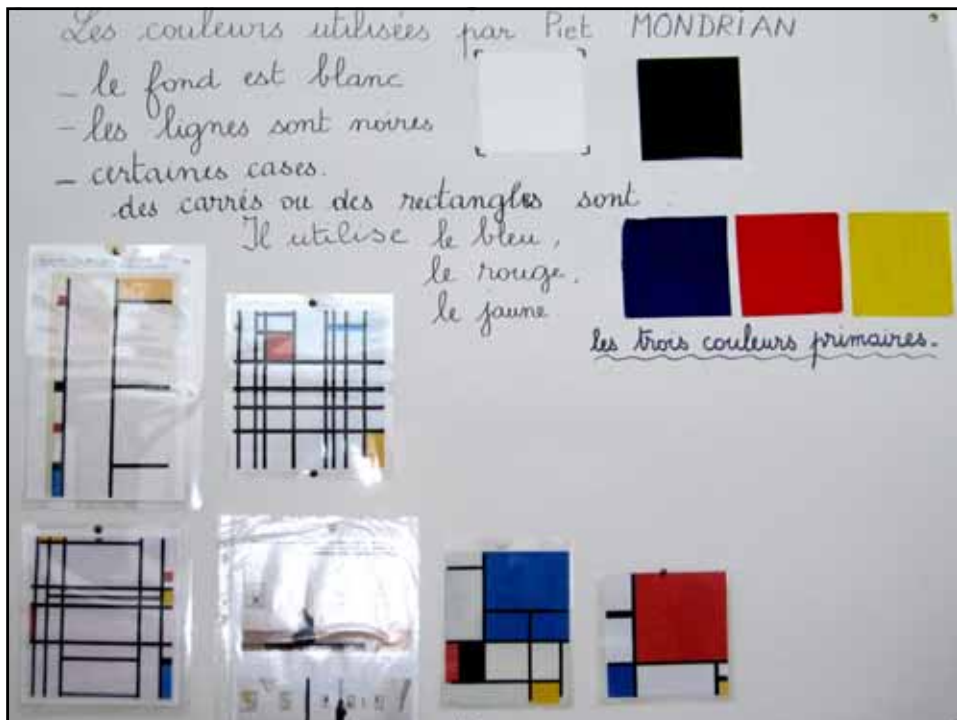 Les couleurs utilisées par Piet MONDRIAN
_ le fond est blanc
- les lignes sont noires
_ certaines cases.
des carrés ou des rectangles sont.
Il utilise le bleu,
le rouge.
le jaune
les trois couleurs primaires.